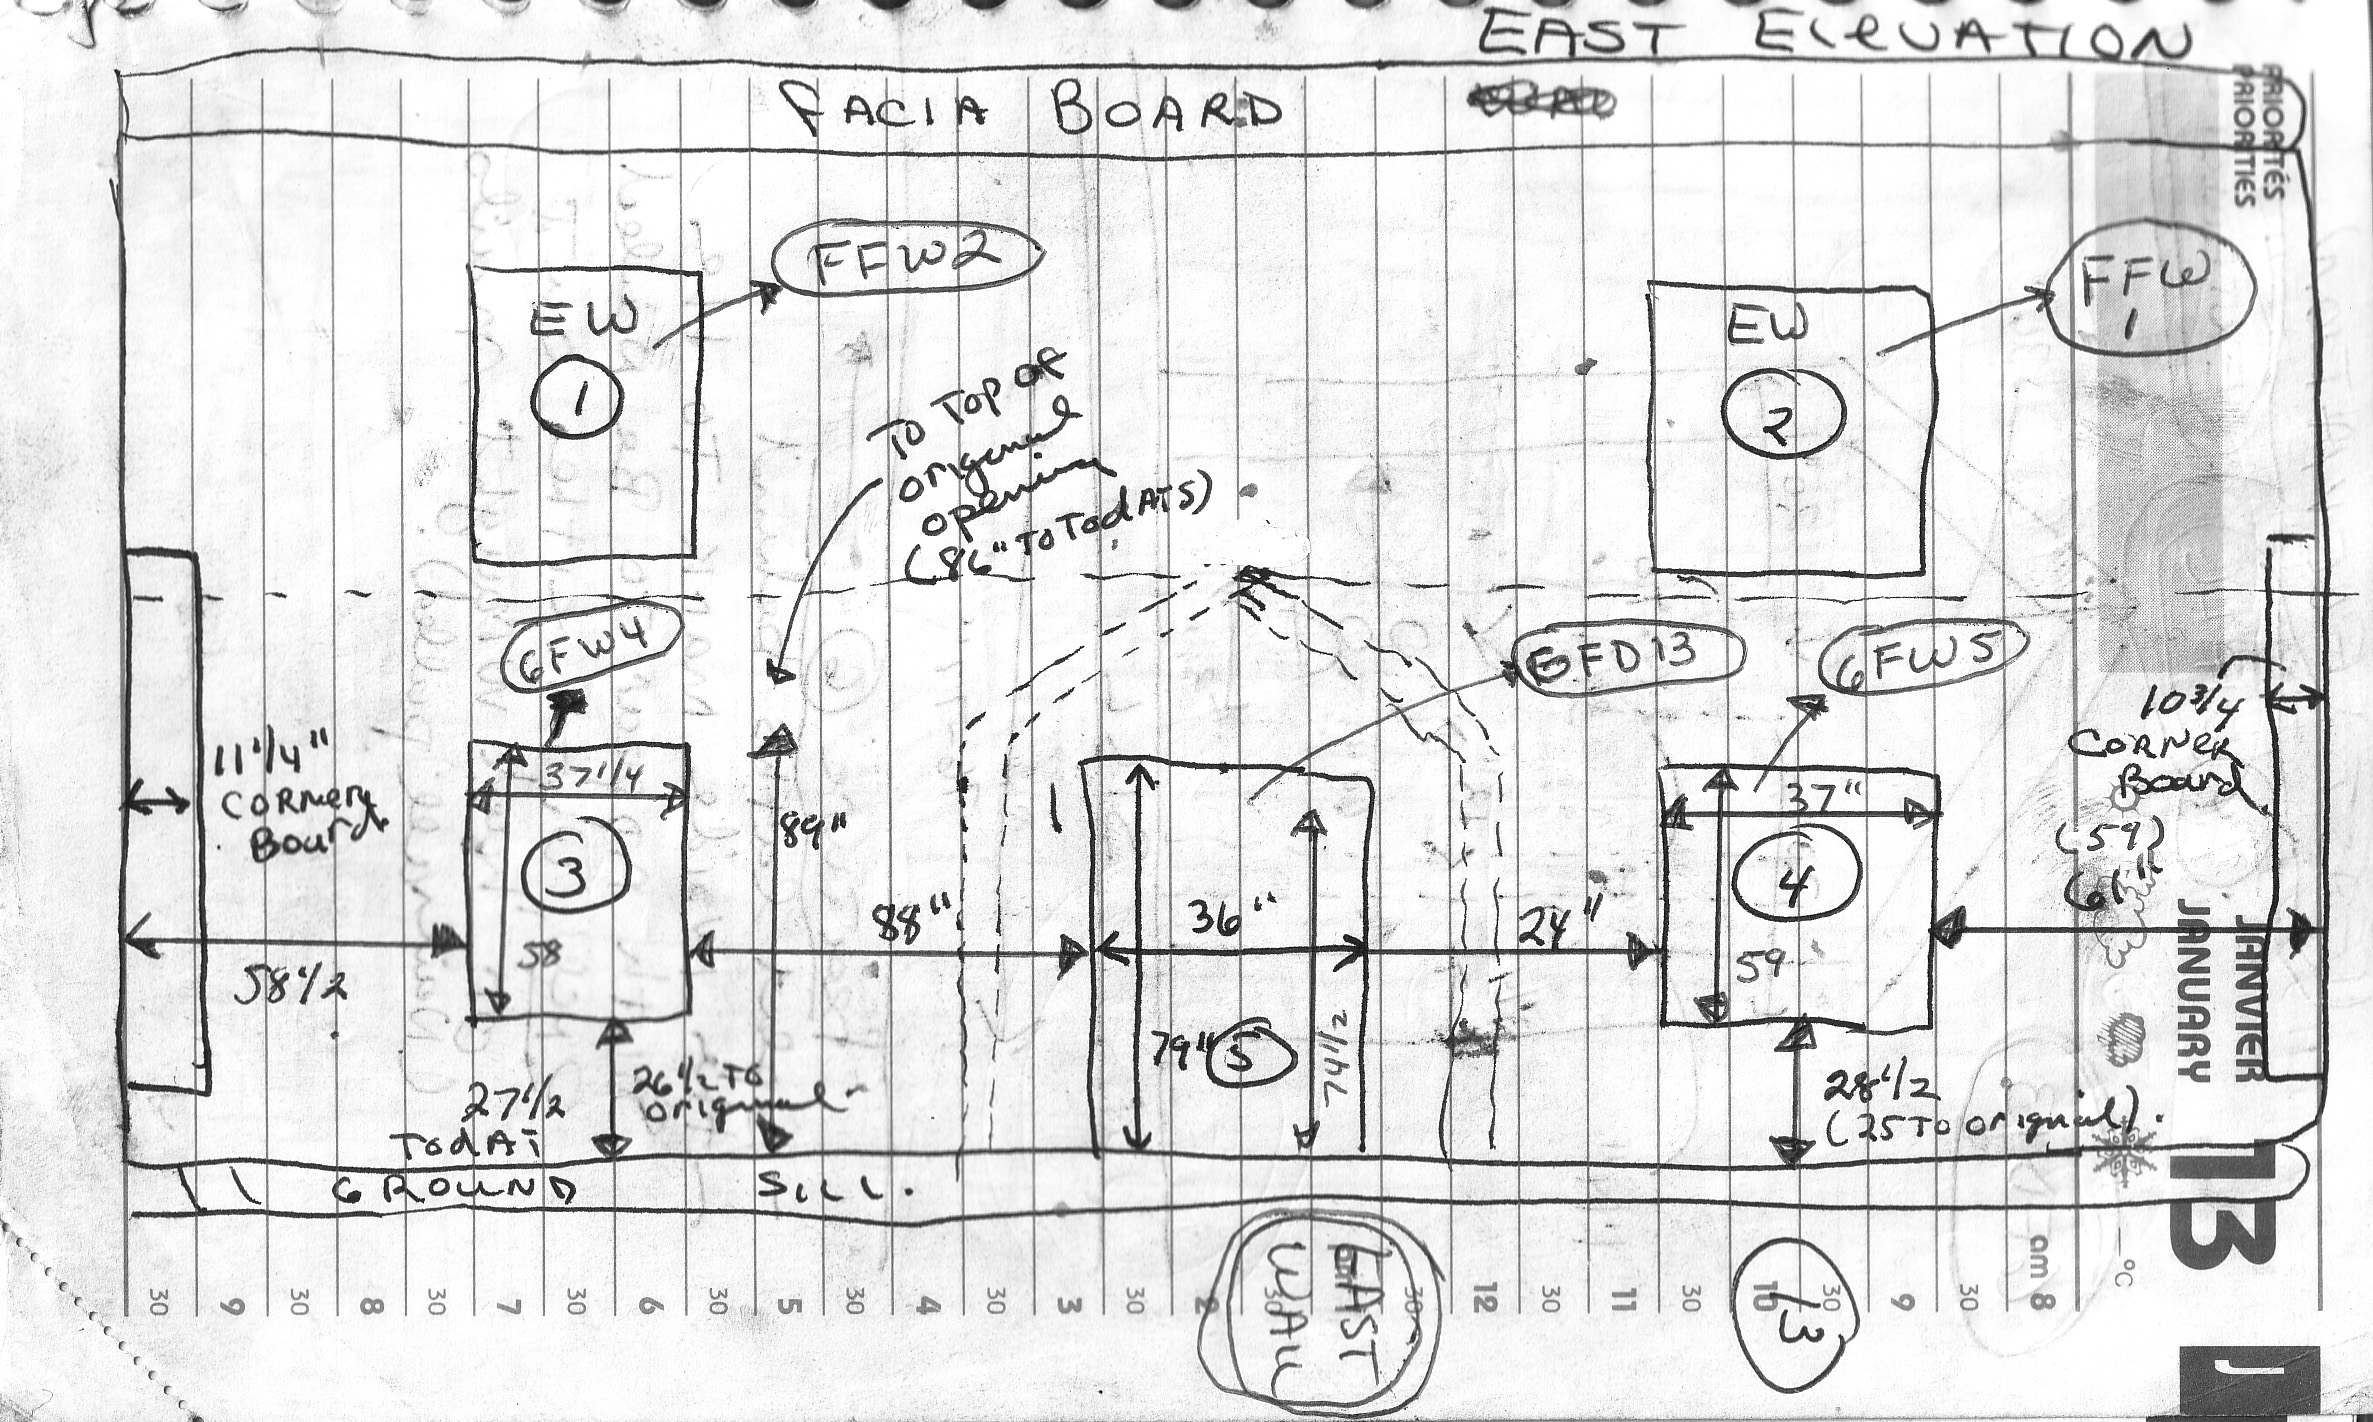 EAST ElevATION
FACIA BOARD
PRIORITÉS
PRIORITIES
FFW2
FFW
1
EW
1
EW
2
To Top of
original
opening
(86" To TodATS)
GFW4
GFD13
GFW5
10 3/4
CORNeR
Board
11 1/4"
CORNER
Board
37 1/4
3
58
89"
37"
4
59
(59)
61"
88"
36"
24"
58 1/2
79"
5
74 1/2
27 1/2
TodAT
26 1/2 TO
original
28 1/2
(25 TO original).
JANVIER
JANUARY
13
GROUND SILL.
EAST
WALL
13
30 9 30 8 30 7 30 6 30 5 30 4 30 3 30 2 30 30 12 30 11 30 10 30 9 30 8 am °C
J